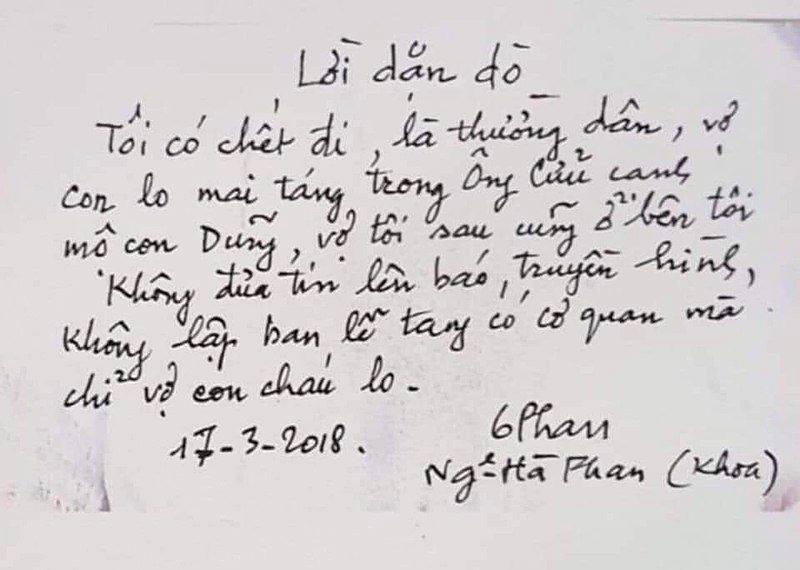 Lời dặn dò
Tôi có chết đi, là thường dân, vợ
con lo mai táng trong Ông Cửu cạnh
mồ con Dũng, vợ tôi sau cũng ở bên tôi
Không đưa tin lên báo, truyền hình,
không lập ban lễ tang có cơ quan mà
chỉ vợ con cháu lo.
17-3-2018.
6Phan
Ng~ Hà Phan (Khoa)